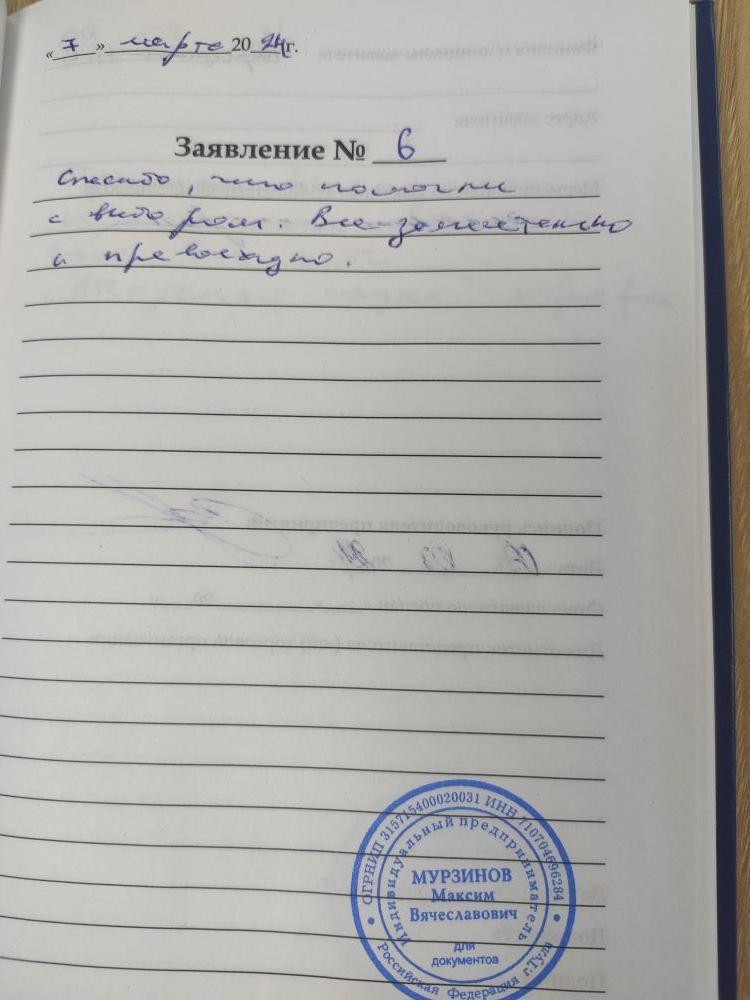 « 7 » марта 2024г.
Заявление № 6
Спасибо, что помогли
с выбором. Все замечательно
и превосходно.
ОГРНИП 315715400020031 ИНН 710704696284
Индивидуальный предприниматель
МУРЗИНОВ
Максим
Вячеславович
для
документов
Российская Федерация г.Тула